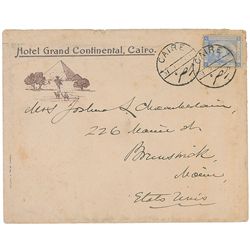 Hotel Grand Continental, Cairo.
CAIRE
CAIRE
Mrs Joshua L Chamberlain,
226 Maine St
Brunswick,
Maine,
Etats Unis